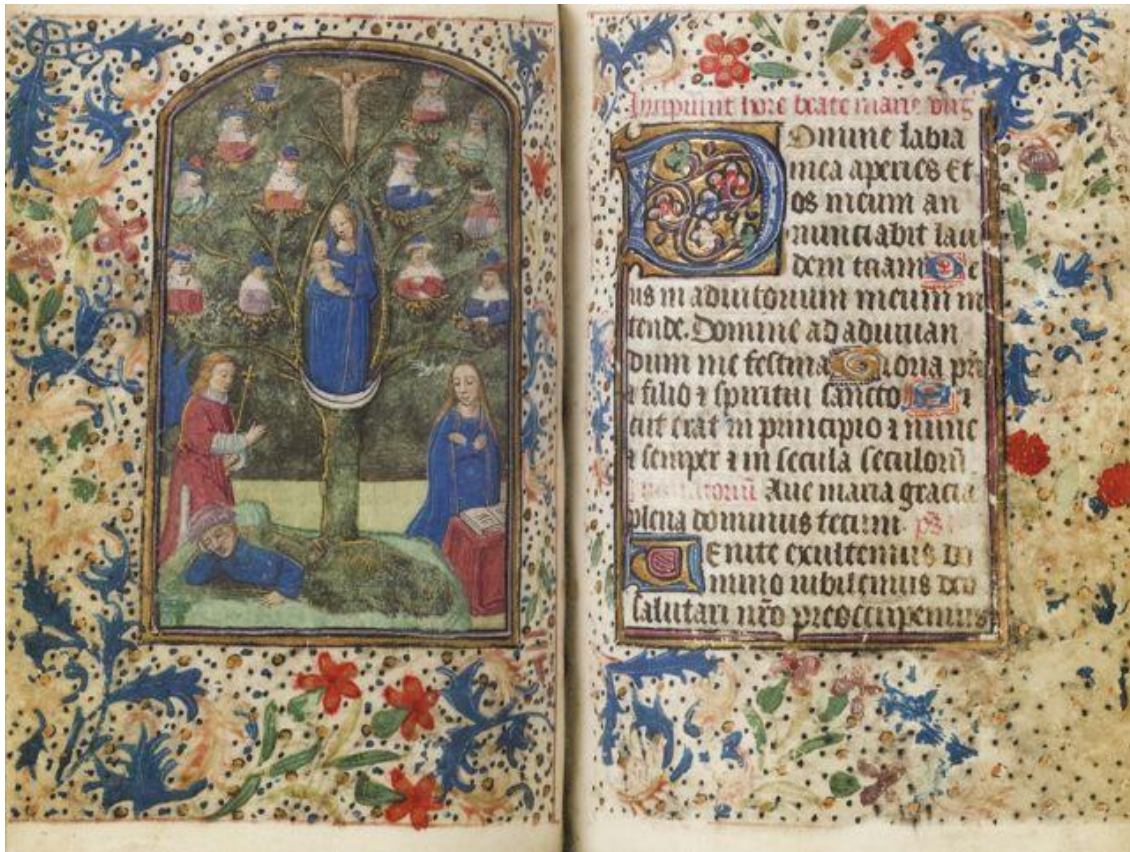 Incipiunt hore beate marie virg
Domine labia
mea aperies Et
os meum an
nunciabit lau
dem tuam De
us in adiutorium meum in
tende. Domine ad adiuuan
dum me festina Gloria pr̄i
⁊ filio ⁊ spiritui sancto Si
cut erat in principio ⁊ nunc
⁊ semper ⁊ in secula seculorū
Inuitatoriū Aue maria gracia
plena dominus tecum. ps̄
Uenite exultemus do
mino iubilemus deo
salutari nr̄o preoccupemus